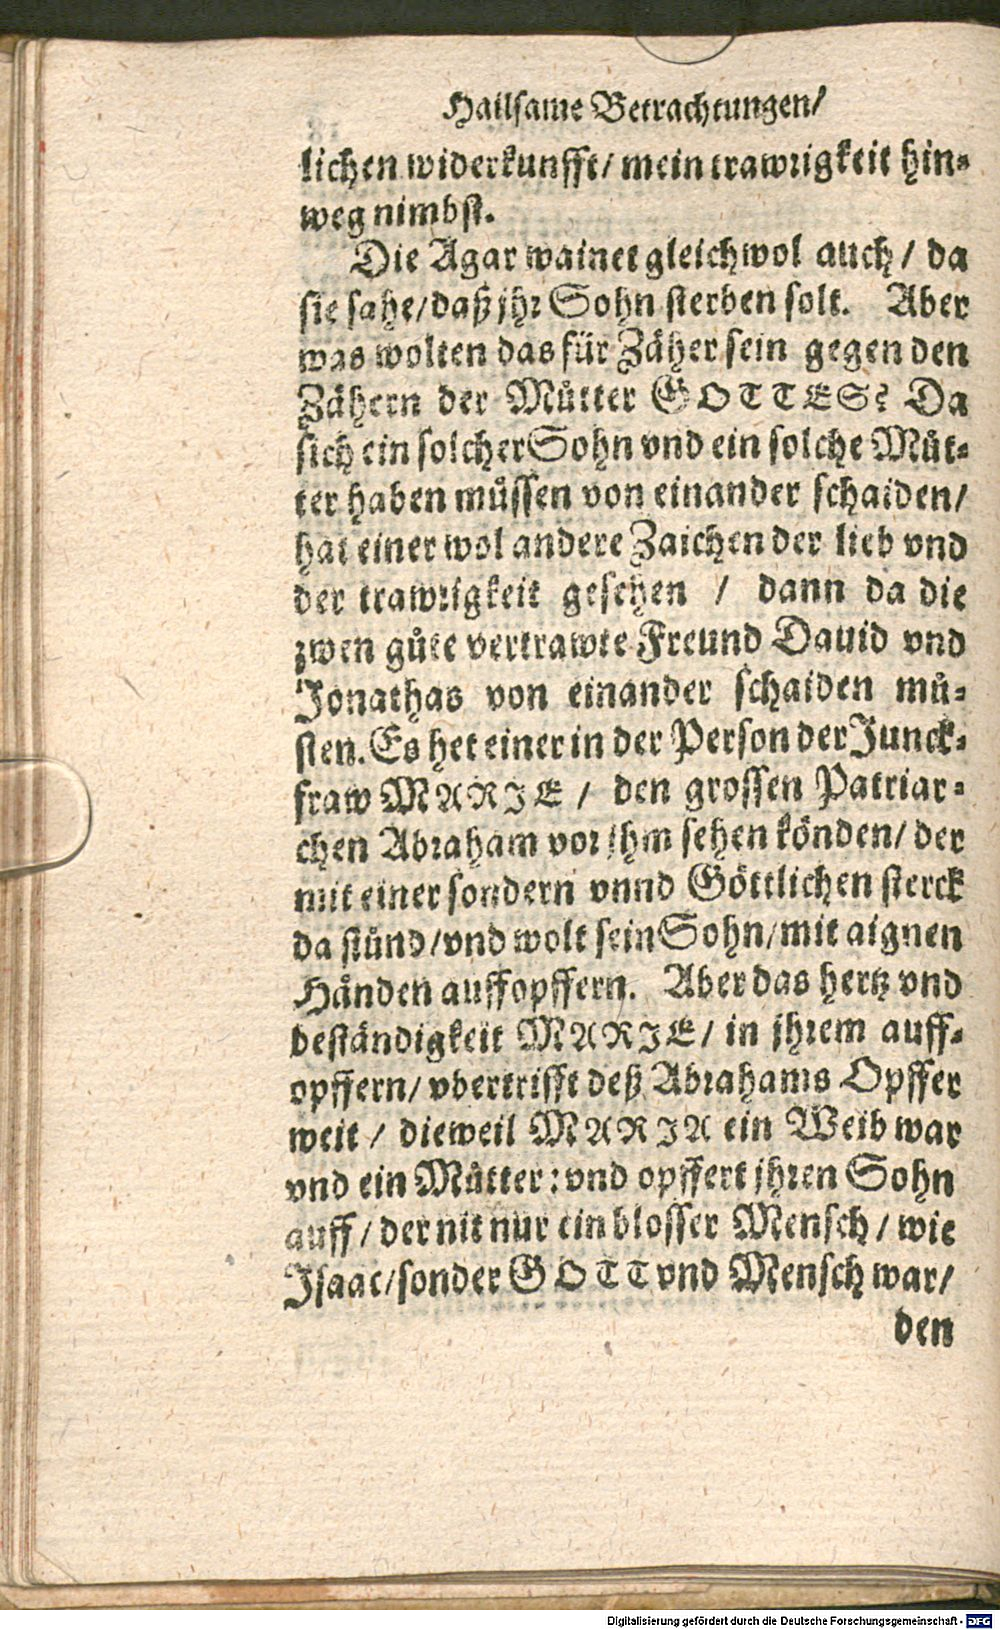 Hailsame Betrachtungen/
lichen widerkunfft/ mein trawrigkeit hin-
weg nimbst.
Die Agar wainet gleichwol auch/ da
sie sahe/daß jhr Sohn sterben solt. Aber
was wolten das für Zäher sein gegen den
Zähern der Můtter GOTTES? Da
sich ein solcher Sohn vnd ein solche Můt-
ter haben můssen von einander schaiden/
hat einer wol andere Zaichen der lieb vnd
der trawrigkeit gesehen / dann da die
zwen gůte vertrawte Freund Dauid vnd
Jonathas von einander schaiden mů-
sten. Es het einer in der Person der Junck-
fraw MARIE / den grossen Patriar-
chen Abraham vor jhm sehen könden/ der
mit einer sondern vnnd Göttlichen sterck
da stůnd/vnd wolt sein Sohn/mit aignen
Händen auffopffern. Aber das hertz vnd
beständigkeit MARIE/ in jhrem auff-
opffern/ vbertrifft deß Abrahams Opffer
weit / dieweil MARIA ein Weib war
vnd ein Můtter: vnd opffert jhren Sohn
auff/ der nit nur ein blosser Mensch/ wie
Isaac/sonder GOTT vnd Mensch war/
den
Digitalisierung gefördert durch die Deutsche Forschungsgemeinschaft - DFG